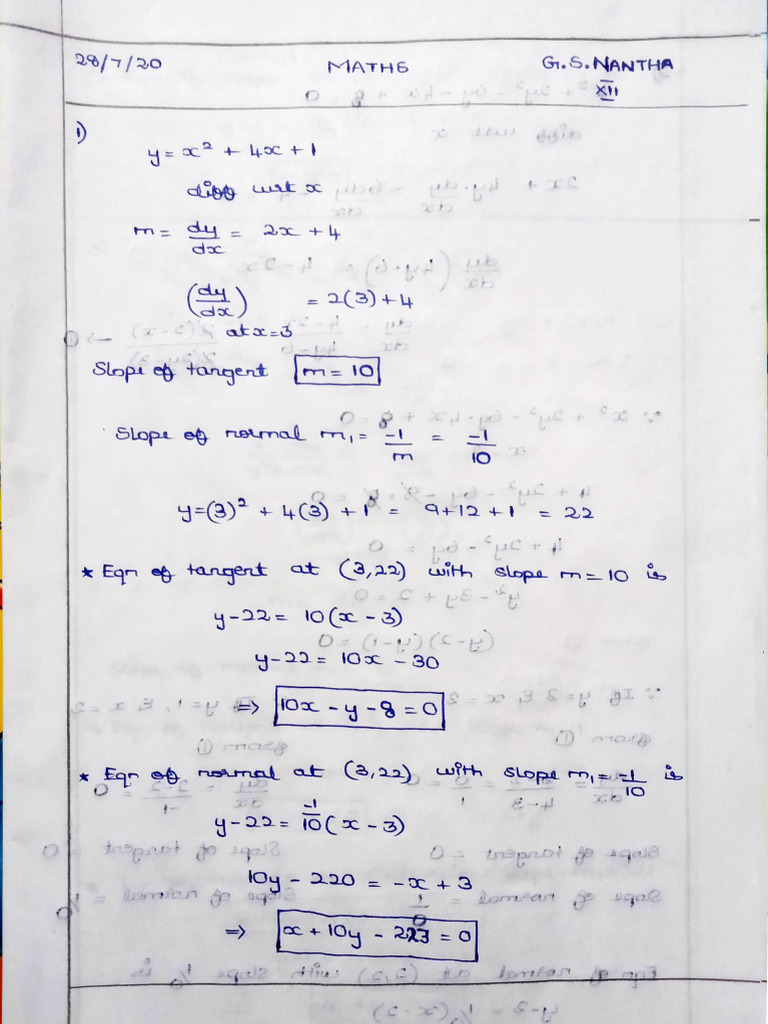 28/7/20 MATHS G.S.NANTHA
XII
1)
y = x² + 4x + 1
diff wrt x
m = dy/dx = 2x + 4
(dy/dx) at x=3 = 2(3) + 4
Slope of tangent m = 10
Slope of normal m₁ = -1/m = -1/10
y = (3)² + 4(3) + 1 = 9 + 12 + 1 = 22
* Eqn of tangent at (3,22) with slope m = 10 is
y - 22 = 10(x - 3)
y - 22 = 10x - 30
⇒ 10x - y - 8 = 0
* Eqn of normal at (3,22) with slope m₁ = -1/10 is
y - 22 = -1/10 (x - 3)
10y - 220 = -x + 3
⇒ x + 10y - 223 = 0